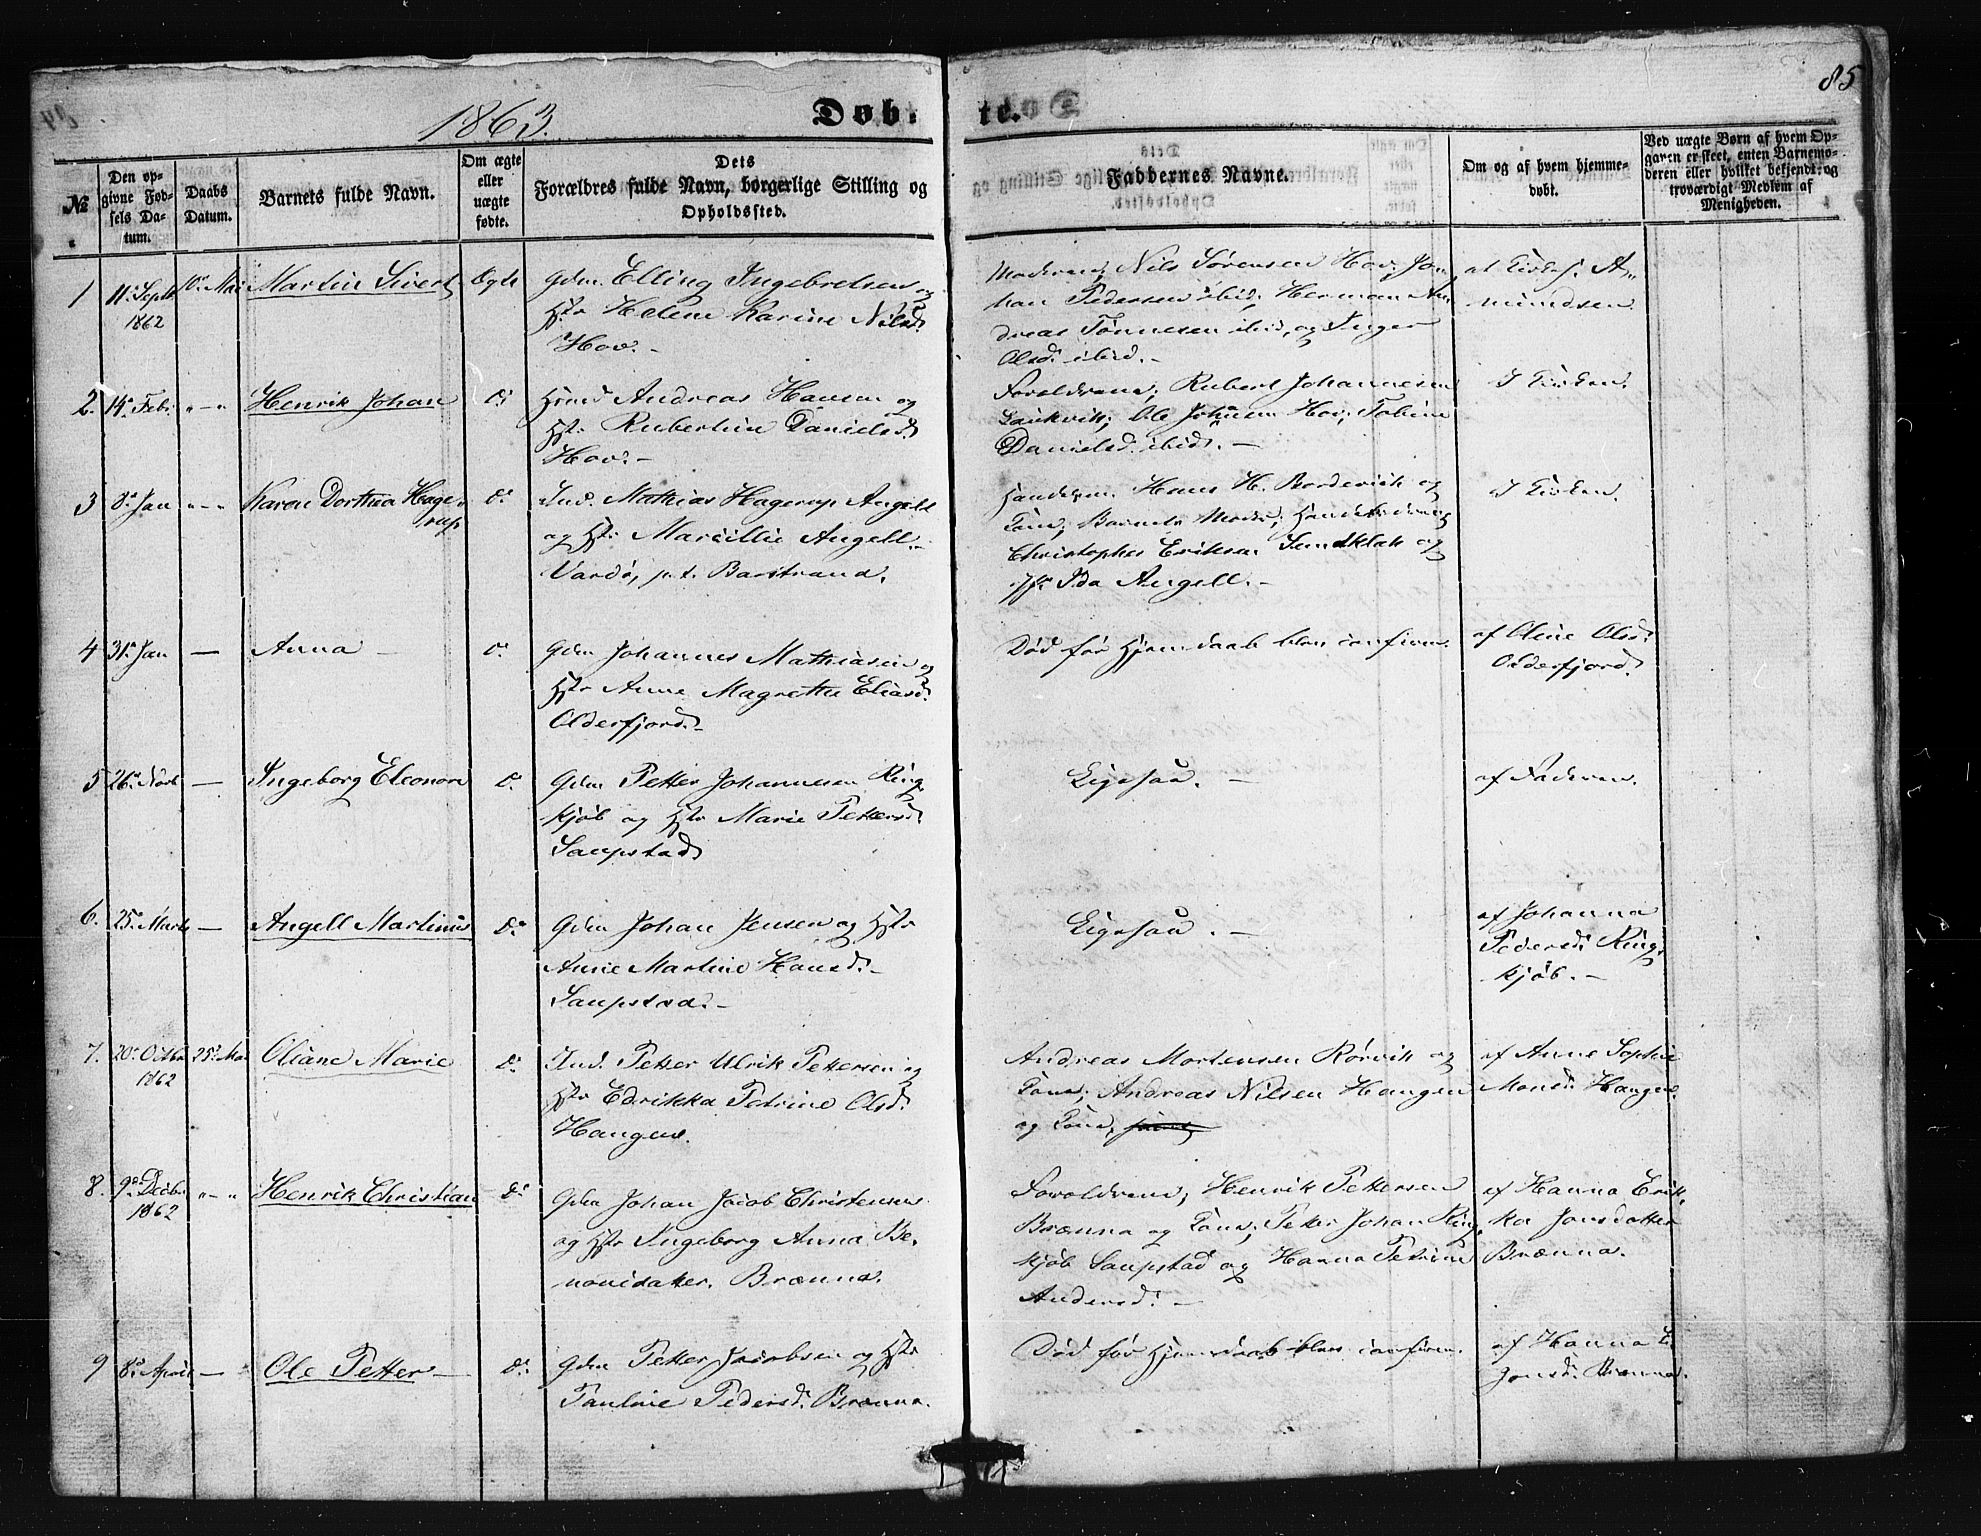 85
1863.
Døb-
te.
№
Den op-
givne Fød-
sels Da-
tum.
Daabs
Datum.
Barnets fulde Navn.
Om ægte
eller
uægte
fødte.
Dets
Forældres fulde Navn, borgerlige Stilling og
Opholdssted.
Faddernes Navne.
Om og af hvem hjemme-
døbt.
Ved uægte Børn af hvem Op-
gaven er skeet, enten Barnemo-
deren eller hvilket bekjendt og
troværdigt Medlem af
Menigheden.
1
11te Septbr
1862
10de Mai
Martin Sivert
Ægte
Gdm Elling Ingebretsen og
Hstr Helene Karine Nilsd.
Hov. -
Moderen, Nils Sørensen Hov; Jo-
han Pedersen ibid; Herman An-
dreas Tønnesen ibid, og Inger
Olsd. ibid. -
af Kirkes. A-
mundsen
2.
14de Febr
"-"
Henrik Johan
Do
Hmd Andreas Hansen og
Hstr Rubertine Danielsd.
Hov. -
Forældrene; Rubert Johannesen
Laukvik; Ole Johnsen Hov; Tobine
Danielsd. ibid. -
I Kirken.
3
8de Jan
"-"
Karen Dorthea Hage-
rup
Do
Ind. Mathias Hagerup Angell
og Hstr Marcillie Angell.-
Vardø, p.t. Barstrand.
Handelsm. Hans H. Borderich og
Kone; Barnets Moder;
Christopher Eriksen Sundklak og
Jfr Ida Angell. -
I Kirken.
4
31te Jan
-
Anna -
Do
Gdm Johannes Mathiasen og
Hstr Anne Magrethe Eliasd.
Olderfjord. -
Død før Hjemdaab blev confirm.
af Oline Olsd.
Olderfjord.
5
26de Novb
-
Ingeborg Eleonora
Do
Gdm Petter Johannesen Ring-
kjøb og Hstr Marie Pettersd.
Saupstad
Ligesaa. -
af Faderen.
6.
25de Marts
-
Angell Martinus
Do
Gdm Johan Jensen og Hstr
Anne Martine Hansd. -
Saupstad. -
Ligesaa. -
af Johanna
Pedersd. Ring-
kjøb. -
7.
20de Octbr
1862
25de Mai
Oliane Marie
Do
Ind. Petter Ulrik Pettersen og
Hstr Edrikka Petrine Olsd.
Haugen.
Andreas Mortensen Rørvik og
Kone; Andreas Nilsen Haugen
og Kone,
af Anne Sophie
Monsd. Haugen.
8.
9de Decbr
1862
"-"
Henrik Christian
Do
Gdm Johan Jacob Christensen
og Hstr Ingeborg Anna Be-
nonidatter. Brænna.
Forældrene; Henrik Pettersen
Brænna og Kone; Peter Johan Ring-
kjøb Saupstad og Hanna Petrine
Andersd. -
af Hanna Erik-
ka Jonsdatter
Brænna.
9
8de April
-
Ole Petter -
Do
Gdm Petter Jacobsen og Hstr
Pauline Pedersd. Brænna.
Død før Hjemdaab blev confirm.
af Hanna E.
Jonsd. Brænna.